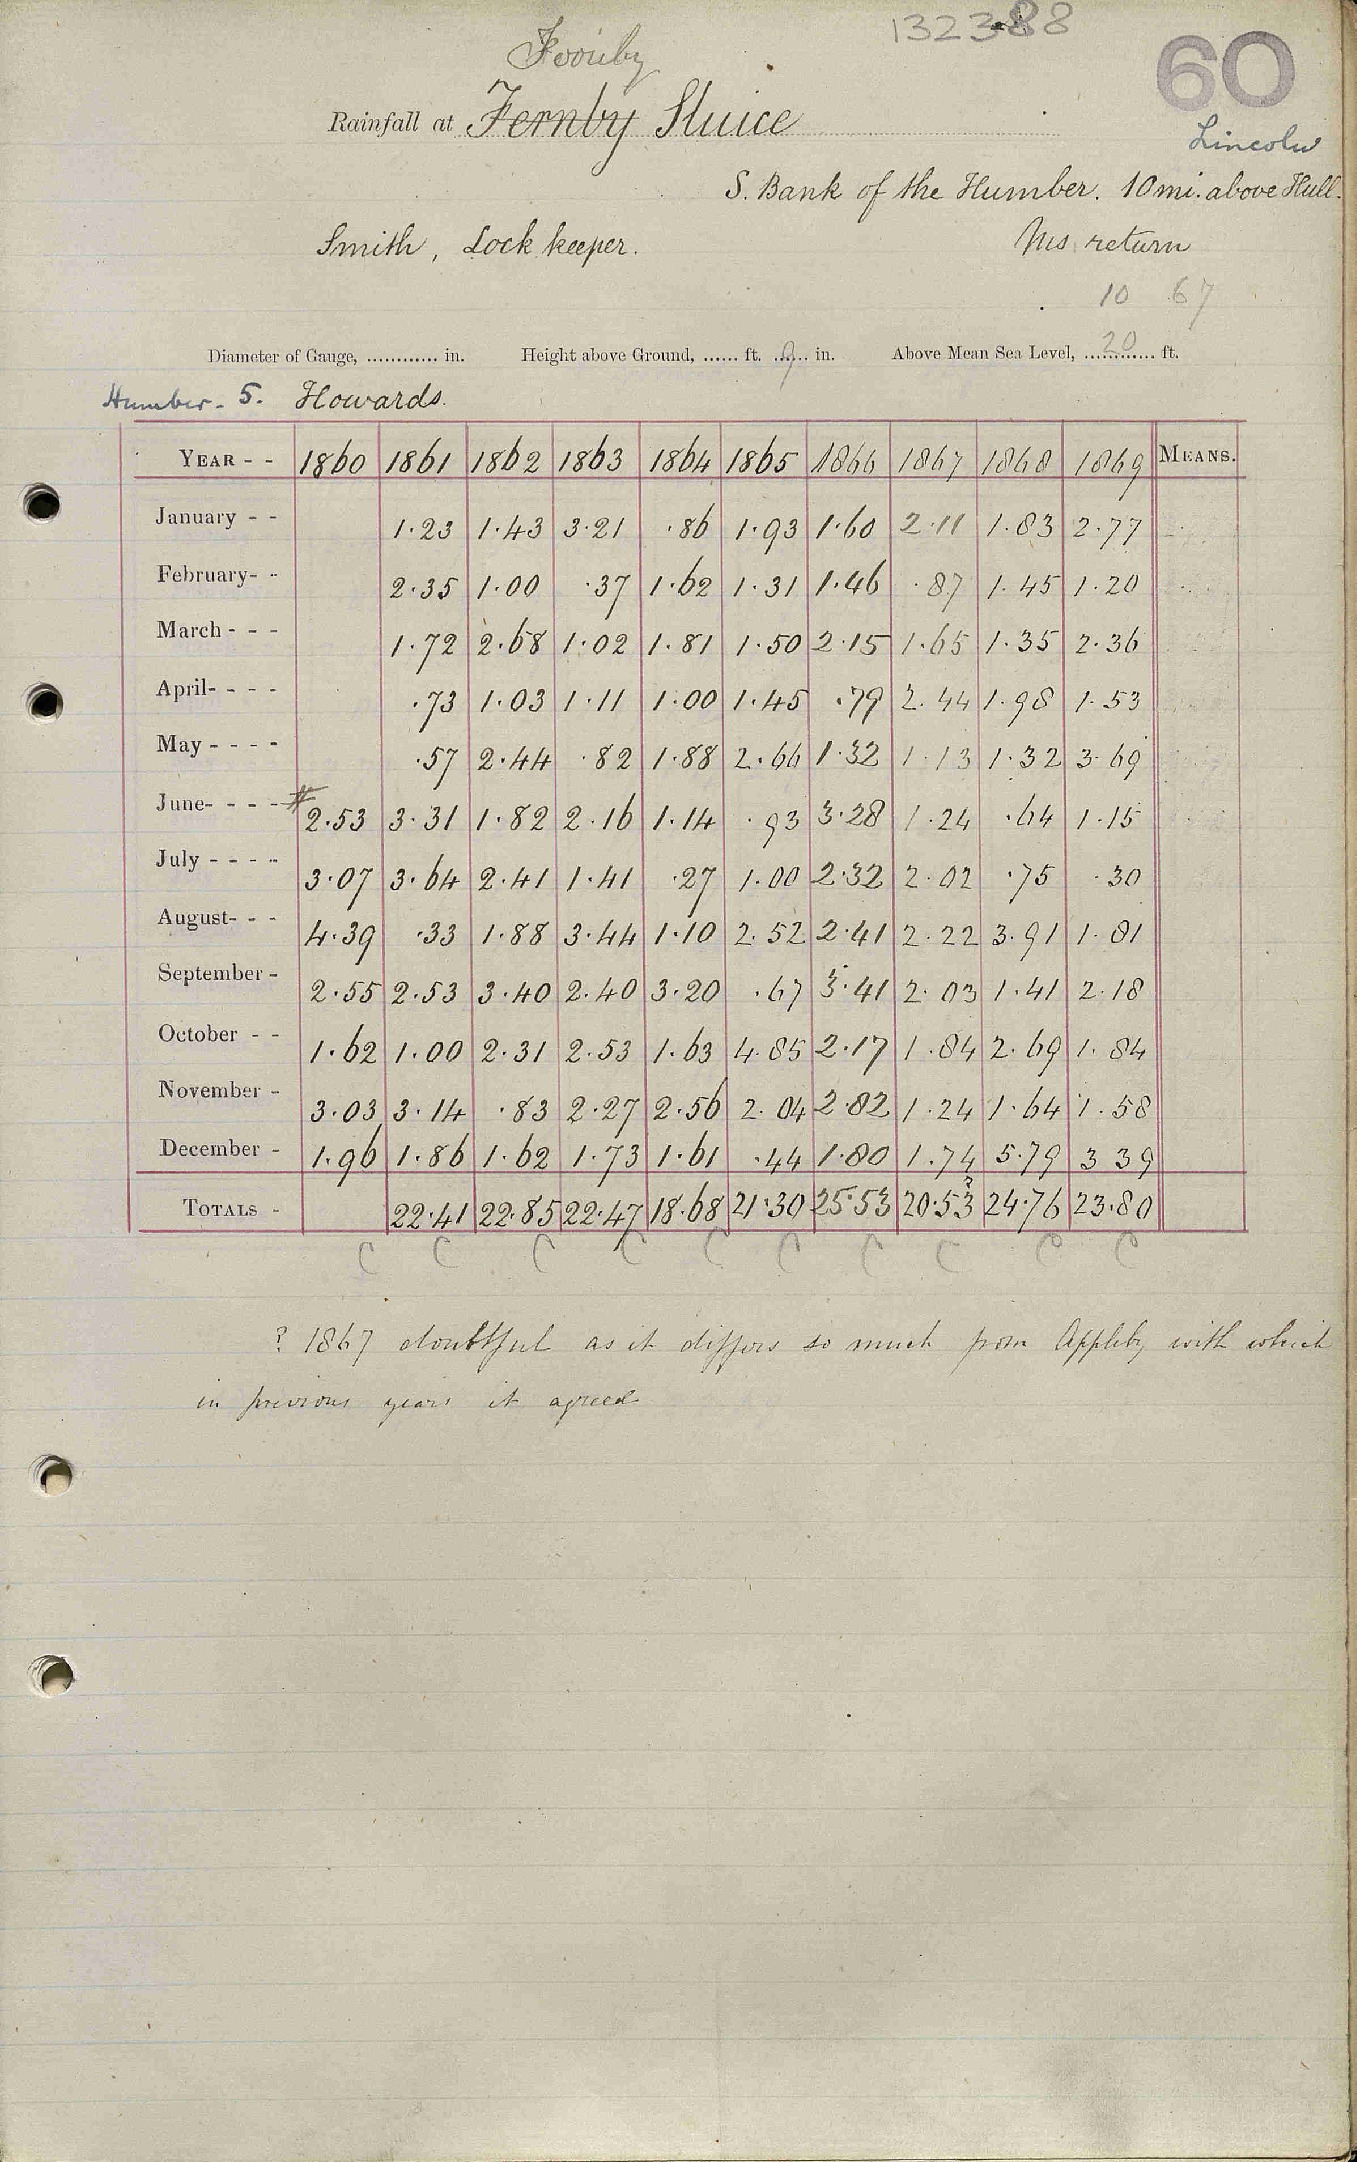 132388
60
Rainfall at Fernby Sluice
Lincoln
S. Bank of the Humber. 10 mi. above Hull.
Smith, Lock keeper.
Ms return
10 67
Diameter of Gauge, ............ in. Height above Ground, ...... ft. 9 in. Above Mean Sea Level, 20 ft.
Humber. 5. Howards.
YEAR - - 1860 1861 1862 1863 1864 1865 1866 1867 1868 1869 MEANS.
January - - 1.23 1.43 3.21 .86 1.93 1.60 2.11 1.83 2.77
February- - 2.35 1.00 .37 1.62 1.31 1.46 .87 1.45 1.20
March - - - 1.72 2.68 1.02 1.81 1.50 2.15 1.65 1.35 2.36
April- - - - .73 1.03 1.11 1.00 1.45 .79 2.44 1.98 1.53
May - - - - .57 2.44 .82 1.88 2.66 1.32 1.13 1.32 3.69
June- - - - # 2.53 3.31 1.82 2.16 1.14 .93 3.28 1.24 .64 1.15
July - - - - 3.07 3.64 2.41 1.41 .27 1.00 2.32 2.02 .75 .30
August- - - 4.39 .33 1.88 3.44 1.10 2.52 2.41 2.22 3.91 1.81
September - 2.55 2.53 3.40 2.40 3.20 .67 3.41 2.03 1.41 2.18
October - - 1.62 1.00 2.31 2.53 1.63 4.85 2.17 1.84 2.69 1.84
November - 3.03 3.14 .83 2.27 2.56 2.04 2.82 1.24 1.64 1.58
December - 1.96 1.86 1.62 1.73 1.61 .44 1.80 1.74 5.79 3 39
TOTALS - 22.41 22.85 22.47 18.68 21.30 25.53 20.53? 24.76 23.80
C C C C C C C C C C
? 1867 doubtful as it differs so much from Appleby with which
in previous years it agreed